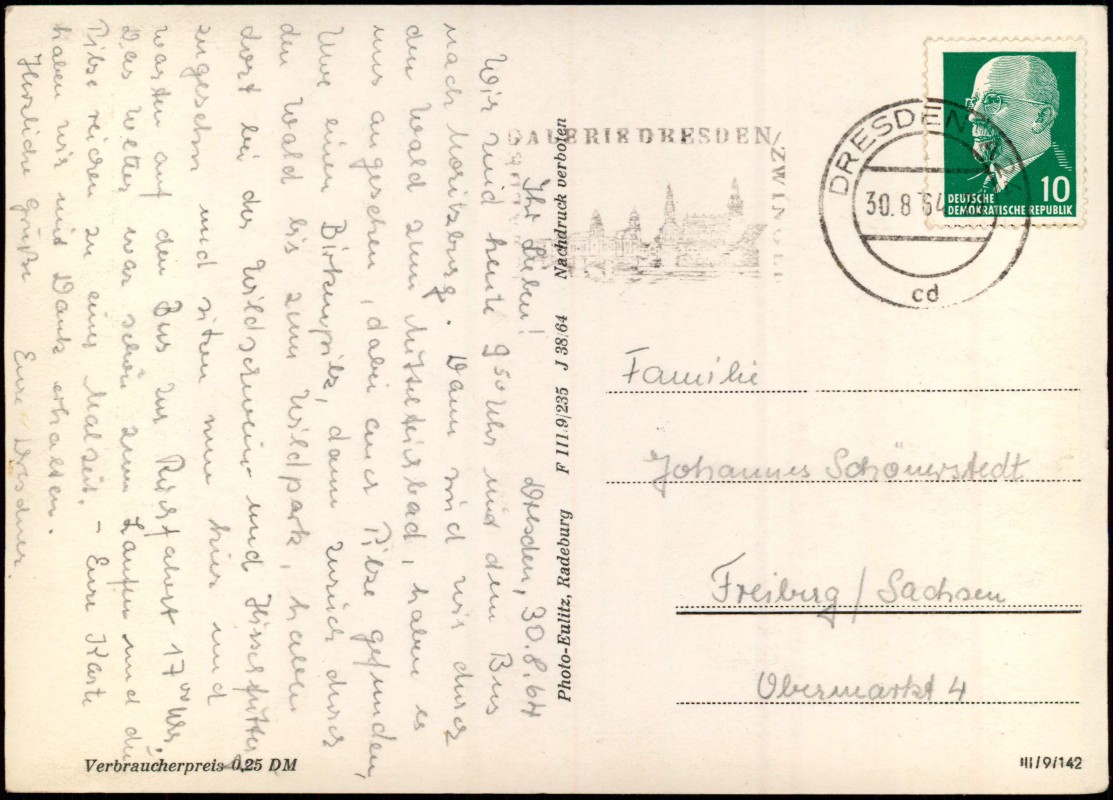 Dresden, 30.8.64
Ihr Lieben!
Wir sind heute 9 50 Uhr mit dem Bus
nach Moritzburg. Dann sind wir durch
den Wald zum Mittelteichbad, haben es
uns angesehen, dabei auch Pilze gefunden,
Uwe einen Birkenpilz, dann zurück durch
den Wald bis zum Wildpark, haben
dort bei der Wildschwein- und Hirschfütterg
zugesehn und sitzen nun hier und
warten auf den Bus zur Rückfahrt 17 00 Uhr.
Das Wetter war schön zum Laufen und die
Pilze reichen zu einer Malzeit. – Eure Karte
haben wir mit Dank erhalten.
Herzliche Grüße Eure Dresdner.
Photo-Eulitz, Radeburg F III.9/235 J 38/64 Nachdruck verboten
GALERIE DRESDEN
ZWINGER
DRESDEN
30.8.64
cd
10
DEUTSCHE
DEMOKRATISCHE REPUBLIK
Familie
Johannes Schönerstedt
Freiberg / Sachsen
Obermarkt 4
Verbraucherpreis 0,25 DM
III/9/142